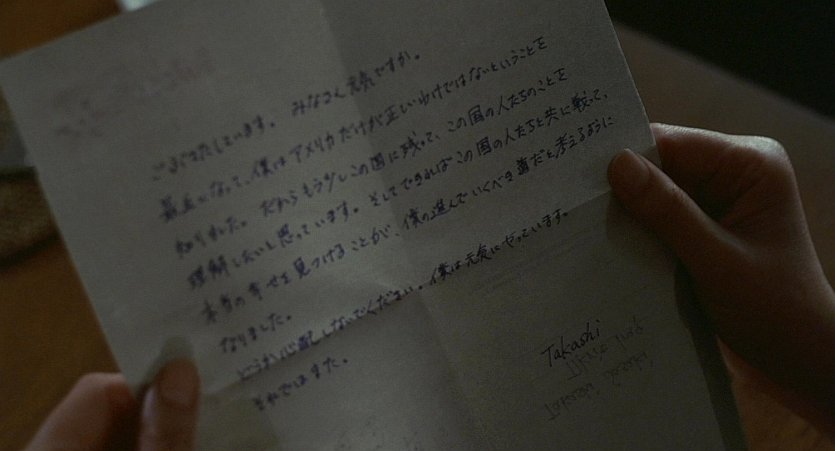 ごぶさたしています。みなさん元気ですか。
最近になって、僕はアメリカだけが正しいわけではないということを
知りました。だからもう少しこの国に残って、この国の人たちのことを
理解したいと思っています。そしてできればこの国の人たちと共に戦って、
本当の幸せを見つけることが、僕の選んでいくべき道だと考えるように
なりました。
どうか心配しないでください。僕は元気にやっています。
それではまた。
Takashi